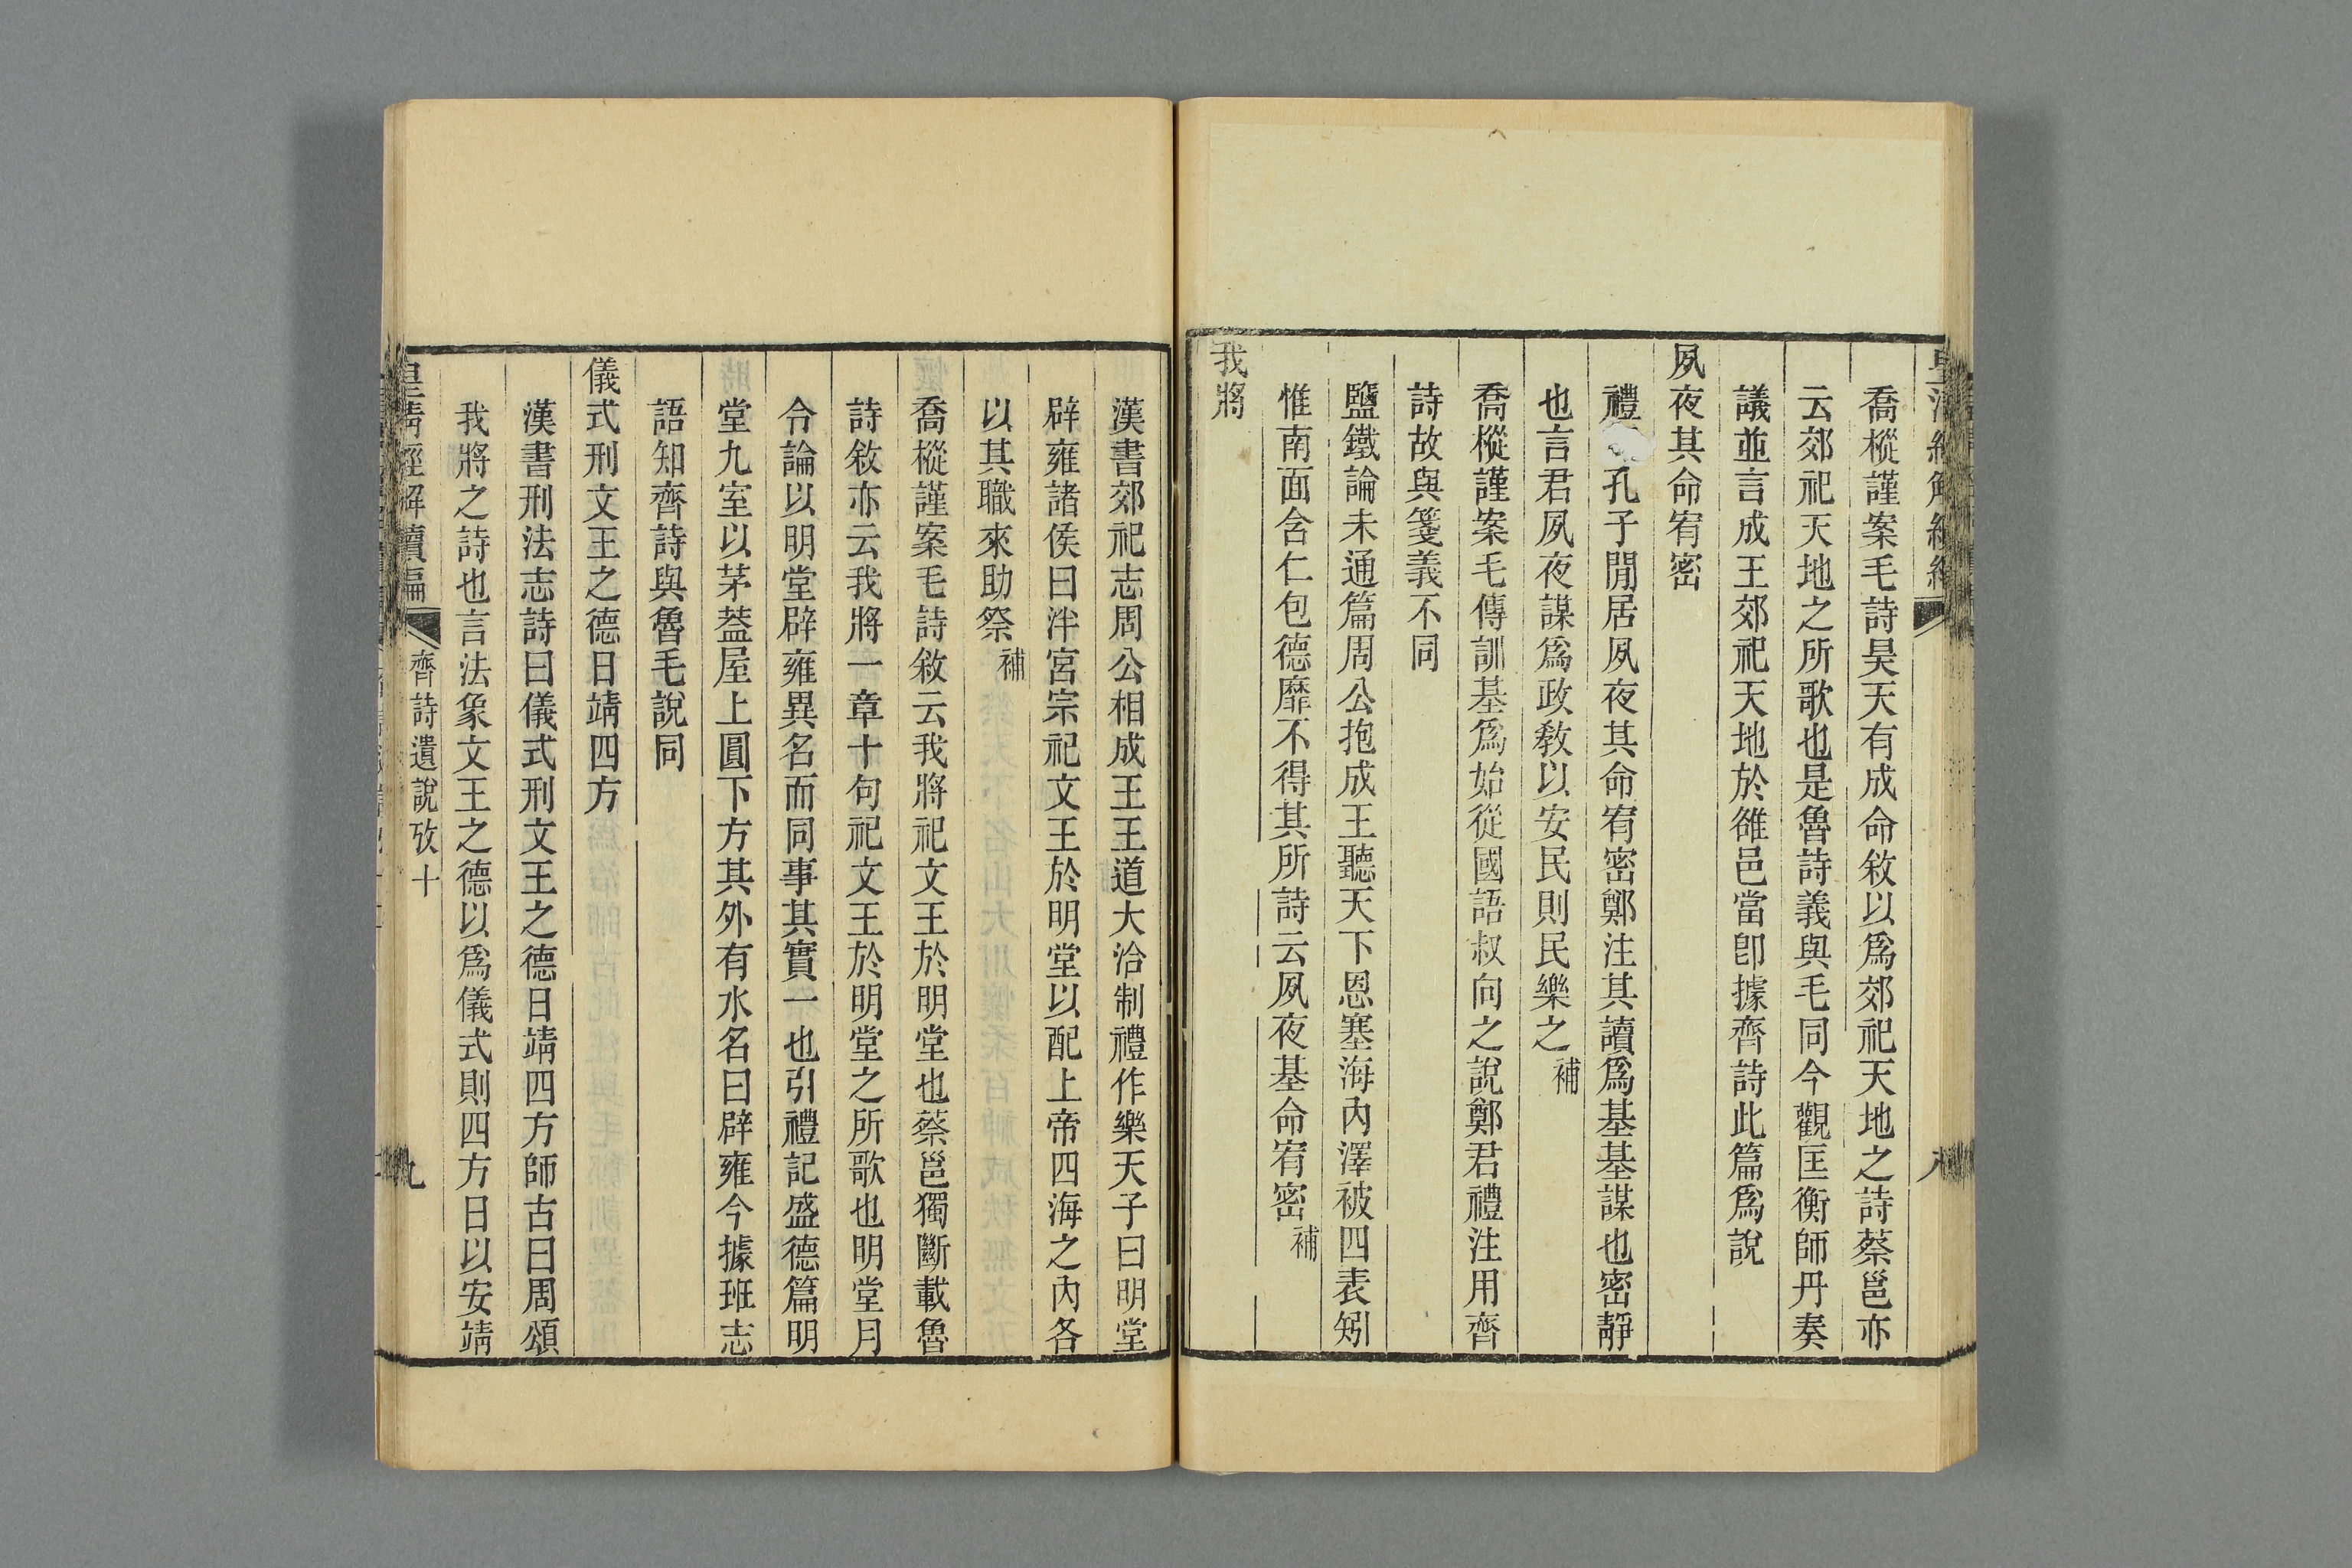 喬樅謹案毛詩昊天有成命敘以爲郊祀天地之詩蔡邕亦
云郊祀天地之所歌也是魯詩義與毛同今觀匡衡師丹奏
議並言成王郊祀天地於雒邑當卽據齊詩此篇爲說
夙夜其命宥密
禮 孔子閒居夙夜其命宥密鄭注其讀爲基基謀也密靜
也言君夙夜謀爲政敎以安民則民樂之補
喬樅謹案毛傳訓基爲始從國語叔向之說鄭君禮注用齊
詩故與箋義不同
鹽鐵論未通篇周公抱成王聽天下恩塞海內澤被四表矧
惟南面含仁包德靡不得其所詩云夙夜基命宥密補
我將
漢書郊祀志周公相成王王道大洽制禮作樂天子曰明堂
辟雍諸侯曰泮宮宗祀文王於明堂以配上帝四海之內各
以其職來助祭補
喬樅謹案毛詩敘云我將祀文王於明堂也蔡邕獨斷載魯
詩敘亦云我將一章十句祀文王於明堂之所歌也明堂月
令論以明堂辟雍異名而同事其實一也引禮記盛德篇明
堂九室以茅葢屋上圓下方其外有水名曰辟雍今據班志
語知齊詩與魯毛說同
儀式刑文王之德日靖四方
漢書刑法志詩曰儀式刑文王之德日靖四方師古曰周頌
我將之詩也言法象文王之德以爲儀式則四方日以安靖
皇淸經解續編 齊詩遺說攷十 九